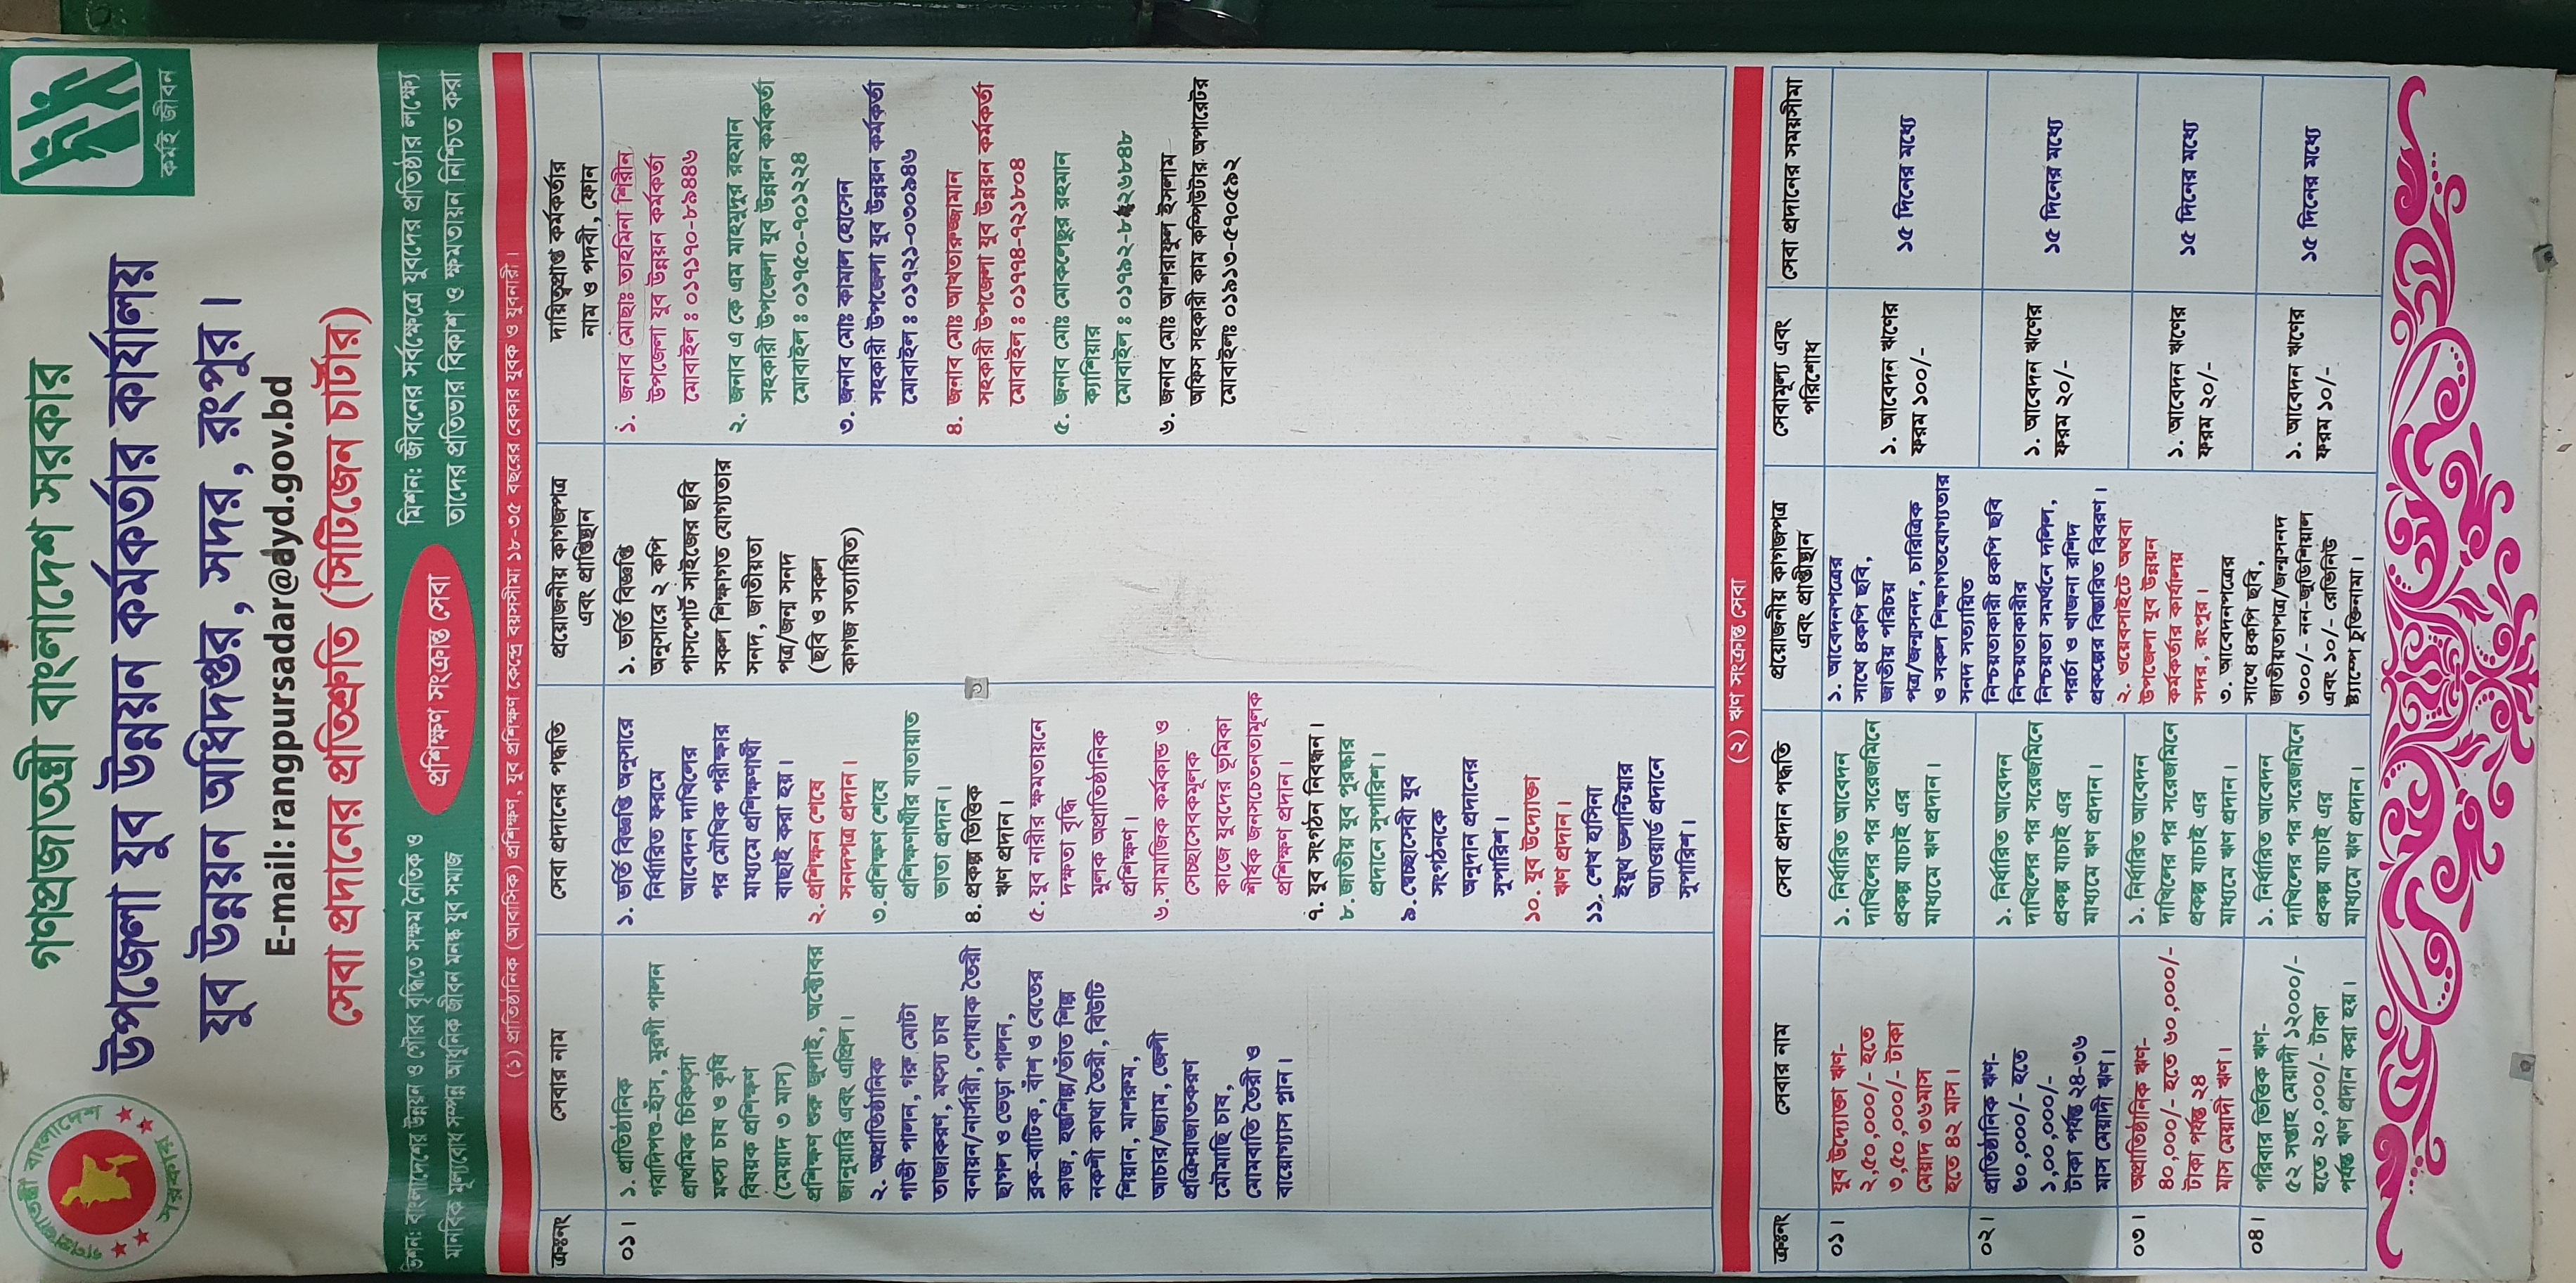 গণপ্রজাতন্ত্রী বাংলাদেশ সরকার
উপজেলা যুব উন্নয়ন কর্মকর্তার কার্যালয়
যুব উন্নয়ন অধিদপ্তর, সদর, রংপুর।
E-mail: rangpursadar@dyd.gov.bd
সেবা প্রদানের প্রতিশ্রুতি (সিটিজেন চার্টার)
গণপ্রজাতন্ত্রী বাংলাদেশ
সরকার
কর্মই জীবন
ভিশন: বাংলাদেশের উন্নয়ন ও গৌরব বৃদ্ধিতে সক্ষম নৈতিক ও
মানবিক মূল্যবোধ সম্পন্ন আধুনিক জীবন মনস্ক যুব সমাজ
প্রশিক্ষণ সংক্রান্ত সেবা
মিশন: জীবনের সর্বক্ষেত্রে যুবদের প্রতিষ্ঠার লক্ষ্যে
তাদের প্রতিভার বিকাশ ও ক্ষমতায়ন নিশ্চিত করা
(১) প্রাতিষ্ঠানিক (আবাসিক) প্রশিক্ষণ, যুব প্রশিক্ষণ কেন্দ্রে বয়সসীমা ১৮-৩৫ বছরের বেকার যুবক ও যুবনারী।
ক্রঃনং
সেবার নাম
সেবা প্রদানের পদ্ধতি
প্রয়োজনীয় কাগজপত্র
এবং প্রাপ্তিস্থান
দায়িত্বপ্রাপ্ত কর্মকর্তার
নাম ও পদবী, ফোন
০১।
১. প্রাতিষ্ঠানিক
গবাদিপশু-হাঁস, মুরগী পালন
প্রাথমিক চিকিৎসা
মৎস্য চাষ ও কৃষি
বিষয়ক প্রশিক্ষণ
(মেয়াদ ৩ মাস)
প্রশিক্ষণ শুরু জুলাই, অক্টোবর
জানুয়ারি এবং এপ্রিল।
২. অপ্রাতিষ্ঠানিক
গাভী পালন, গরু মোটা
তাজাকরণ, মৎস্য চাষ
বনায়ন/নার্সারী, পোষাক তৈরী
ছাগল ও ভেড়া পালন,
ব্লক-বাটিক, বাঁশ ও বেতের
কাজ, হস্তশিল্প/তাঁত শিল্প
নকশী কাথা তৈরী, বিউটি
শিয়ান, মাশরুম,
আচার/জ্যাম, জেলী
প্রক্রিয়াজাতকরণ
মৌমাছি চাষ,
মোমবাতি তৈরী ও
বায়োগ্যাস প্লান।
১. ভর্তি বিজ্ঞপ্তি অনুসারে
নির্ধারিত ফরমে
আবেদন দাখিলের
পর মৌখিক পরীক্ষার
মাধ্যমে প্রশিক্ষণার্থী
বাছাই করা হয়।
২. প্রশিক্ষন শেষে
সনদপত্র প্রদান।
৩. প্রশিক্ষণ শেষে
প্রশিক্ষণার্থীর যাতায়াত
ভাতা প্রদান।
৪. প্রকল্প ভিত্তিক
ঋণ প্রদান।
৫. যুব নারীর ক্ষমতায়নে
দক্ষতা বৃদ্ধি
মূলক অপ্রাতিষ্ঠানিক
প্রশিক্ষণ।
৬. সামাজিক কর্মকান্ড ও
সেচ্ছাসেবকমূলক
কাজে যুবদের ভূমিকা
শীর্ষক জনসচেতনতামূলক
প্রশিক্ষণ প্রদান।
৭. যুব সংগঠন নিবন্ধন।
৮. জাতীয় যুব পুরস্কার
প্রদানে সুপারিশ।
৯. স্বেচ্ছাসেবী যুব
সংগঠনকে
অনুদান প্রদানের
সুপারিশ।
১০. যুব উদ্যোক্তা
ঋণ প্রদান।
১১. শেখ হাসিনা
ইয়ুথ ভলান্টিয়ার
অ্যাওয়ার্ড প্রদানে
সুপারিশ।
১. ভর্তি বিজ্ঞপ্তি
অনুসারে ২ কপি
পাসপোর্ট সাইজের ছবি
সকল শিক্ষাগত যোগ্যতার
সনদ, জাতীয়তা
পত্র/জন্ম সনদ
(ছবি ও সকল
কাগজ সত্যায়িত)
১. জনাব মোছাঃ তাহমিনা শিরীন
উপজেলা যুব উন্নয়ন কর্মকর্তা
মোবাইল : ০১৭১৭০-৮৯৪৪৬
২. জনাব এ কে এম মাহমুদুর রহমান
সহকারী উপজেলা যুব উন্নয়ন কর্মকর্তা
মোবাইল : ০১৭৫০-৭০১২২৪
৩. জনাব মোঃ কামাল হোসেন
সহকারী উপজেলা যুব উন্নয়ন কর্মকর্তা
মোবাইল : ০১৭২১-০৩০৯৪৬
৪. জনাব মোঃ আখতারুজ্জামান
সহকারী উপজেলা যুব উন্নয়ন কর্মকর্তা
মোবাইল : ০১৭৭৪-৭২১৮০৪
৫. জনাব মোঃ মোকলেছুর রহমান
ক্যাশিয়ার
মোবাইল :
৬. জনাব মোঃ আশরাফুল ইসলাম
অফিস সহকারী কাম কম্পিউটার অপারেটর
মোবাইলঃ ০১৯১৩-৫৭০৫৯২
(২) ঋণ সংক্রান্ত সেবা
ক্রঃনং
সেবার নাম
সেবা প্রদান পদ্ধতি
প্রয়োজনীয় কাগজপত্র
এবং প্রাপ্তীস্থান
সেবামূল্য এবং
পরিশোধ
সেবা প্রদানের সময়সীমা
০১।
যুব উদ্যোক্তা ঋণ-
২,৫০,০০০/- হতে
৩,৫০,০০০/- টাকা
মেয়াদ ৩৬মাস
হতে ৪২ মাস।
১. নির্ধারিত আবেদন
দাখিলের পর সরেজমিনে
প্রকল্প যাচাই এর
মাধ্যমে ঋণ প্রদান।
১. আবেদনপত্রের
সাথে ৪কপি ছবি,
জাতীয় পরিচয়
পত্র/জন্মসনদ, চারিত্রিক
ও সকল শিক্ষাগতযোগ্যতার
সনদ সত্যায়িত
নিশ্চয়তাকারী ৪কপি ছবি
নিশ্চয়তাকারীর
নিশ্চয়তা সমর্থনে দলিল,
পরচা ও খাজনা রশিদ
প্রকল্পের বিস্তারিত বিবরণ।
২. ওয়েবসাইটে অথবা
উপজেলা যুব উন্নয়ন
কর্মকর্তার কার্যালয়
সদর, রংপুর।
৩. আবেদনপত্রের
সাথে ৪কপি ছবি,
জাতীয়তাপত্র/জন্মসনদ
৩০০/- নন-জুডিশিয়াল
এবং ১০/- রেভিনিউ
ষ্ট্যাম্পে চুক্তিনামা।
১. আবেদন ঋণের
ফরম ১০০/-
১৫ দিনের মধ্যে
০২।
প্রাতিষ্ঠানিক ঋণ-
৬০,০০০/- হতে
১,০০,০০০/-
টাকা পর্যন্ত ২৪-৩৬
মাস মেয়াদী ঋণ।
১. নির্ধারিত আবেদন
দাখিলের পর সরেজমিনে
প্রকল্প যাচাই এর
মাধ্যমে ঋণ প্রদান।
১. আবেদন ঋণের
ফরম ২০/-
১৫ দিনের মধ্যে
০৩।
অপ্রাতিষ্ঠানিক ঋণ-
৪০,০০০/- হতে ৬০,০০০/-
টাকা পর্যন্ত ২৪
মাস মেয়াদী ঋণ।
১. নির্ধারিত আবেদন
দাখিলের পর সরেজমিনে
প্রকল্প যাচাই এর
মাধ্যমে ঋণ প্রদান।
১. আবেদন ঋণের
ফরম ২০/-
১৫ দিনের মধ্যে
০৪।
পরিবার ভিত্তিক ঋণ-
৫২ সপ্তাহ মেয়াদী ১২০০০/-
হতে ২০,০০০/- টাকা
পর্যন্ত ঋণ প্রদান করা হয়।
১. নির্ধারিত আবেদন
দাখিলের পর সরেজমিনে
প্রকল্প যাচাই এর
মাধ্যমে ঋণ প্রদান।
১. আবেদন ঋণের
ফরম ১০/-
১৫ দিনের মধ্যে